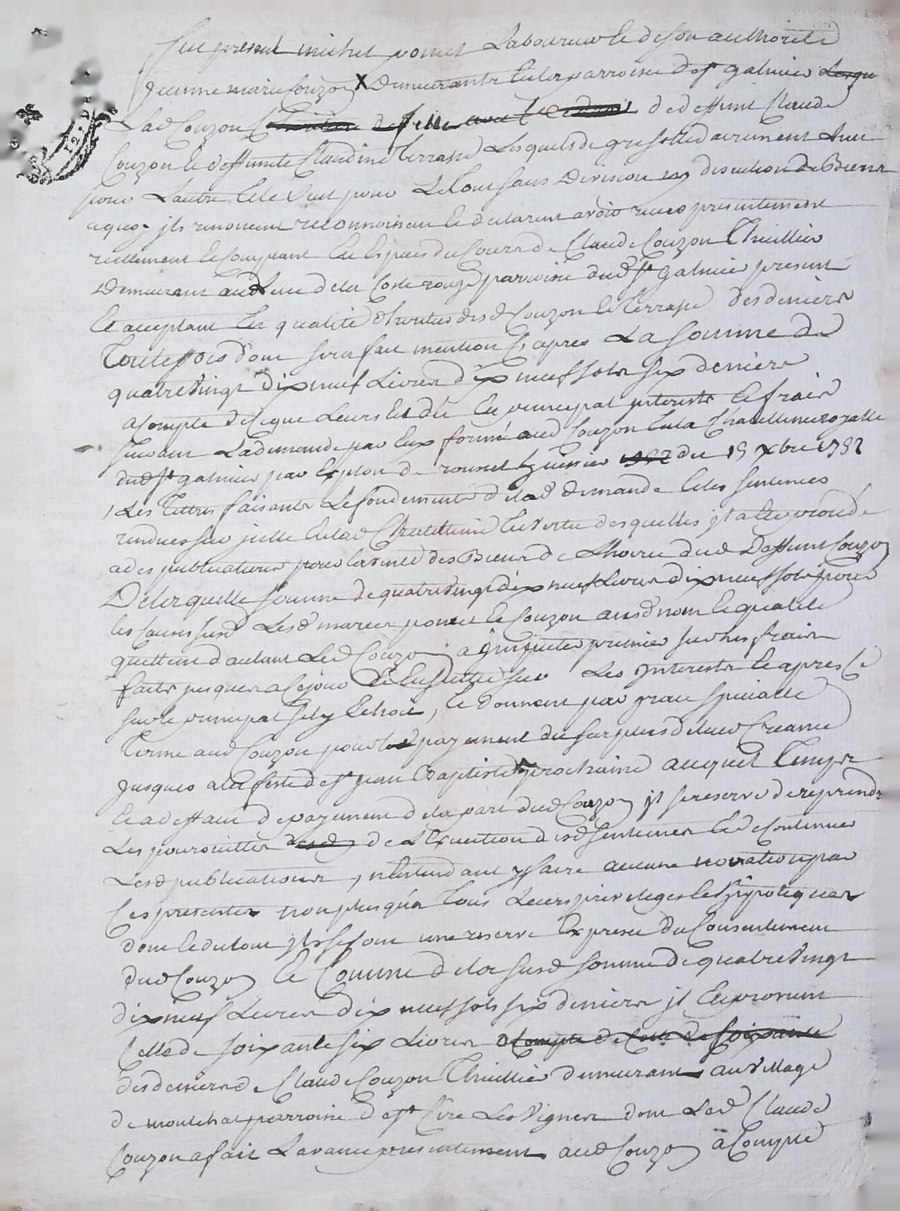 fut present michel poncet Laboureur et de son authorité
jeanne marie Couzon X demeurants en la parroisse de st galmier
Lad Couzon de deffunt Claude
Couzon et deffunte Claudine terrasse Lesquels de gré solidairement L'un
pour L'autre et le Seul pour Le tout sans Division ny discution de Biens
a quoy ils renoncent reconnoissent et declarent avoir receu presentement
reellement et Comptant en Espece du Cours de Claude Couzon Thuillier
demeurant au Lieu de la Coste rouge parroisse dud st galmier present
et acceptant en qualité d'heritier desd Couzon et terrasse des deniers
toutesfois dont sera fait mention Cy apres La Somme de
quatre Vingt dix neuf Livres dix neuf sols six deniers
a Compte de Ce que Leur est dû en principal interests et frais
suivant La demande par eux formé aud Couzon en la Chatellenie royalle
dud st galmier par Exploit de huissier du 15 xbre 1752
Les tittres faisants Le fondement de lad demande et les sentences
rendues sur icelle en lad Chatellenie En vertu desquelles il a été procedé
a des publications pour des Biens de dud Deffunt Couzon
De laquelle Somme de quatre Vingt dix neuf Livres dix neuf sols pour
les Causes susd Lesd maries poncet et Couzon ausd nom et qualité
quittent d'autant Led Couzon a premier sur les frais
faits jusques a Ce jour et Ensuitte sur Les Interests et apres Ce
sur le principal sil y Echoit, et donnent par grace specialle
terme aud Couzon pour le payement du surplus de leur Creance
jusques a la feste de st jean Baptiste prochaine auquel temps
et a deffaut de payement de la part dud Couzon il se reserve de reprendre
Les poursuittes de L'Execution desd sentences et de Continuer
Lesd publications, n'entendant y faire aucune novation par
Ces presentes non plus qu'a tous Leurs privileges et hipoteques
dont et du tout ils se font une reserve Expresse du Consentement
dud Couzon et Comme de la susd somme de quatre Vingt
dix neuf Livres dix neuf sols six deniers il En provient
Celle de soixante six Livres
des deniers de Claude Couzon Thuillier demeurant au Village
de parroisse de st Cire Les Vignes dont Led Claude
Couzon a fait L'avance presentement aud Couzon a Compte